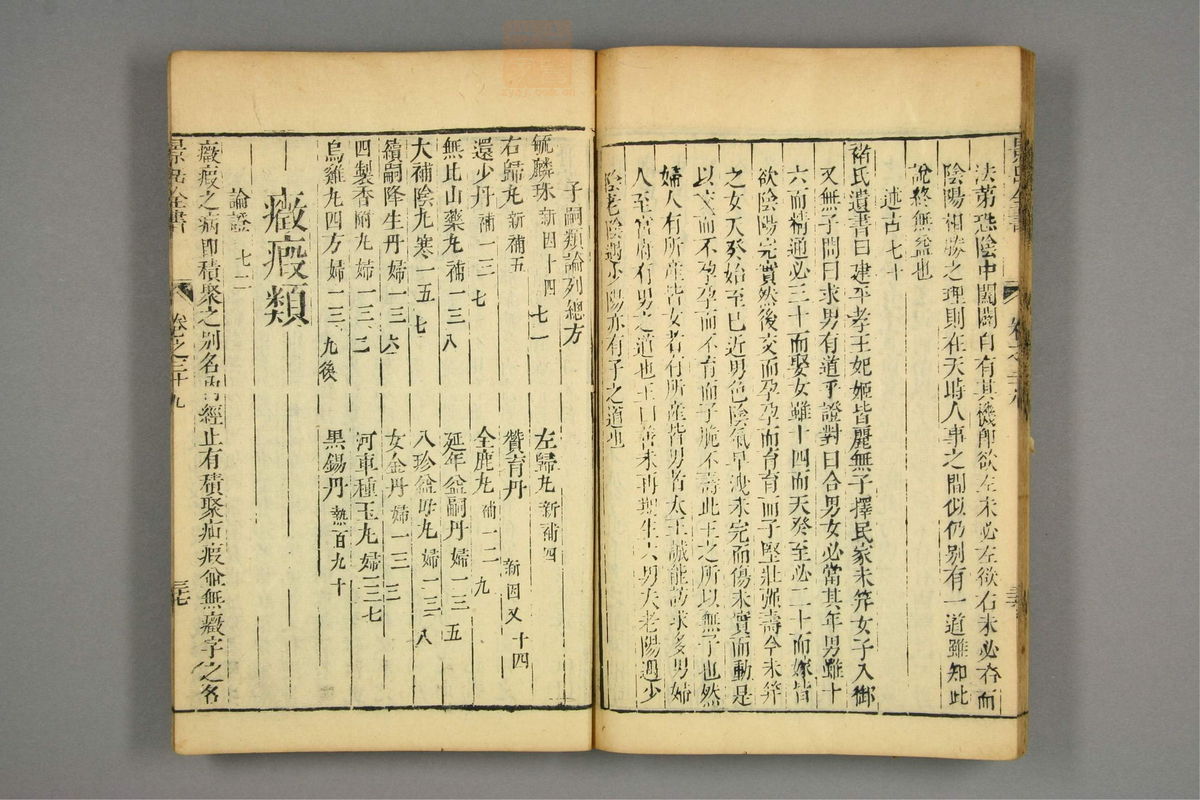 法第恐陰中闔闢自有其機即欲左未必左欲右未必右而
陰陽相勝之理則在天時人事之間似仍別有一道雖知此
說終無益也
述古七十
褚氏遺書曰建平孝王妃姬皆麗無子擇民家未笄女子入御
又無子問曰求男有道乎證對曰合男女必當其年男雖十
六而精通必三十而娶女雖十四而天癸至必二十而嫁皆
欲陰陽完實然後交而孕孕而育育而子堅壯强壽今未笄
之女天癸始至已近男色陰氣早洩未完而傷未實而動是
以交而不孕孕而不育而子脆不壽此王之所以無子也然
婦人有所產皆女者有所產皆男者大王誠能訪求多男婦
人至宮府有男之道也王曰善未再期生六男夫老陽遇少
陰老陰遇少陽亦有子之道也
子嗣類論列總方
毓麟珠 新因十四 七一 左歸丸 新補四
右歸丸 新補五 贊育丹 新因又十四
還少丹 補一三七 全鹿丸 補一二九
無比山藥丸 補一三八 延年益嗣丹 婦一三五
大補陰丸 寒一五七 八珍益母丸 婦一二八
續嗣降生丹 婦一三六 女金丹 婦一三三
四製香附丸 婦一三二 河車種玉丸 婦三三七
烏雞丸四方 婦一三九後 黑錫丹 熱百九十
癥瘕類
論證 七二
癥瘕之病即積聚之別名內經止有積聚疝瘕並無癥字之名
景岳全書
卷之三十九